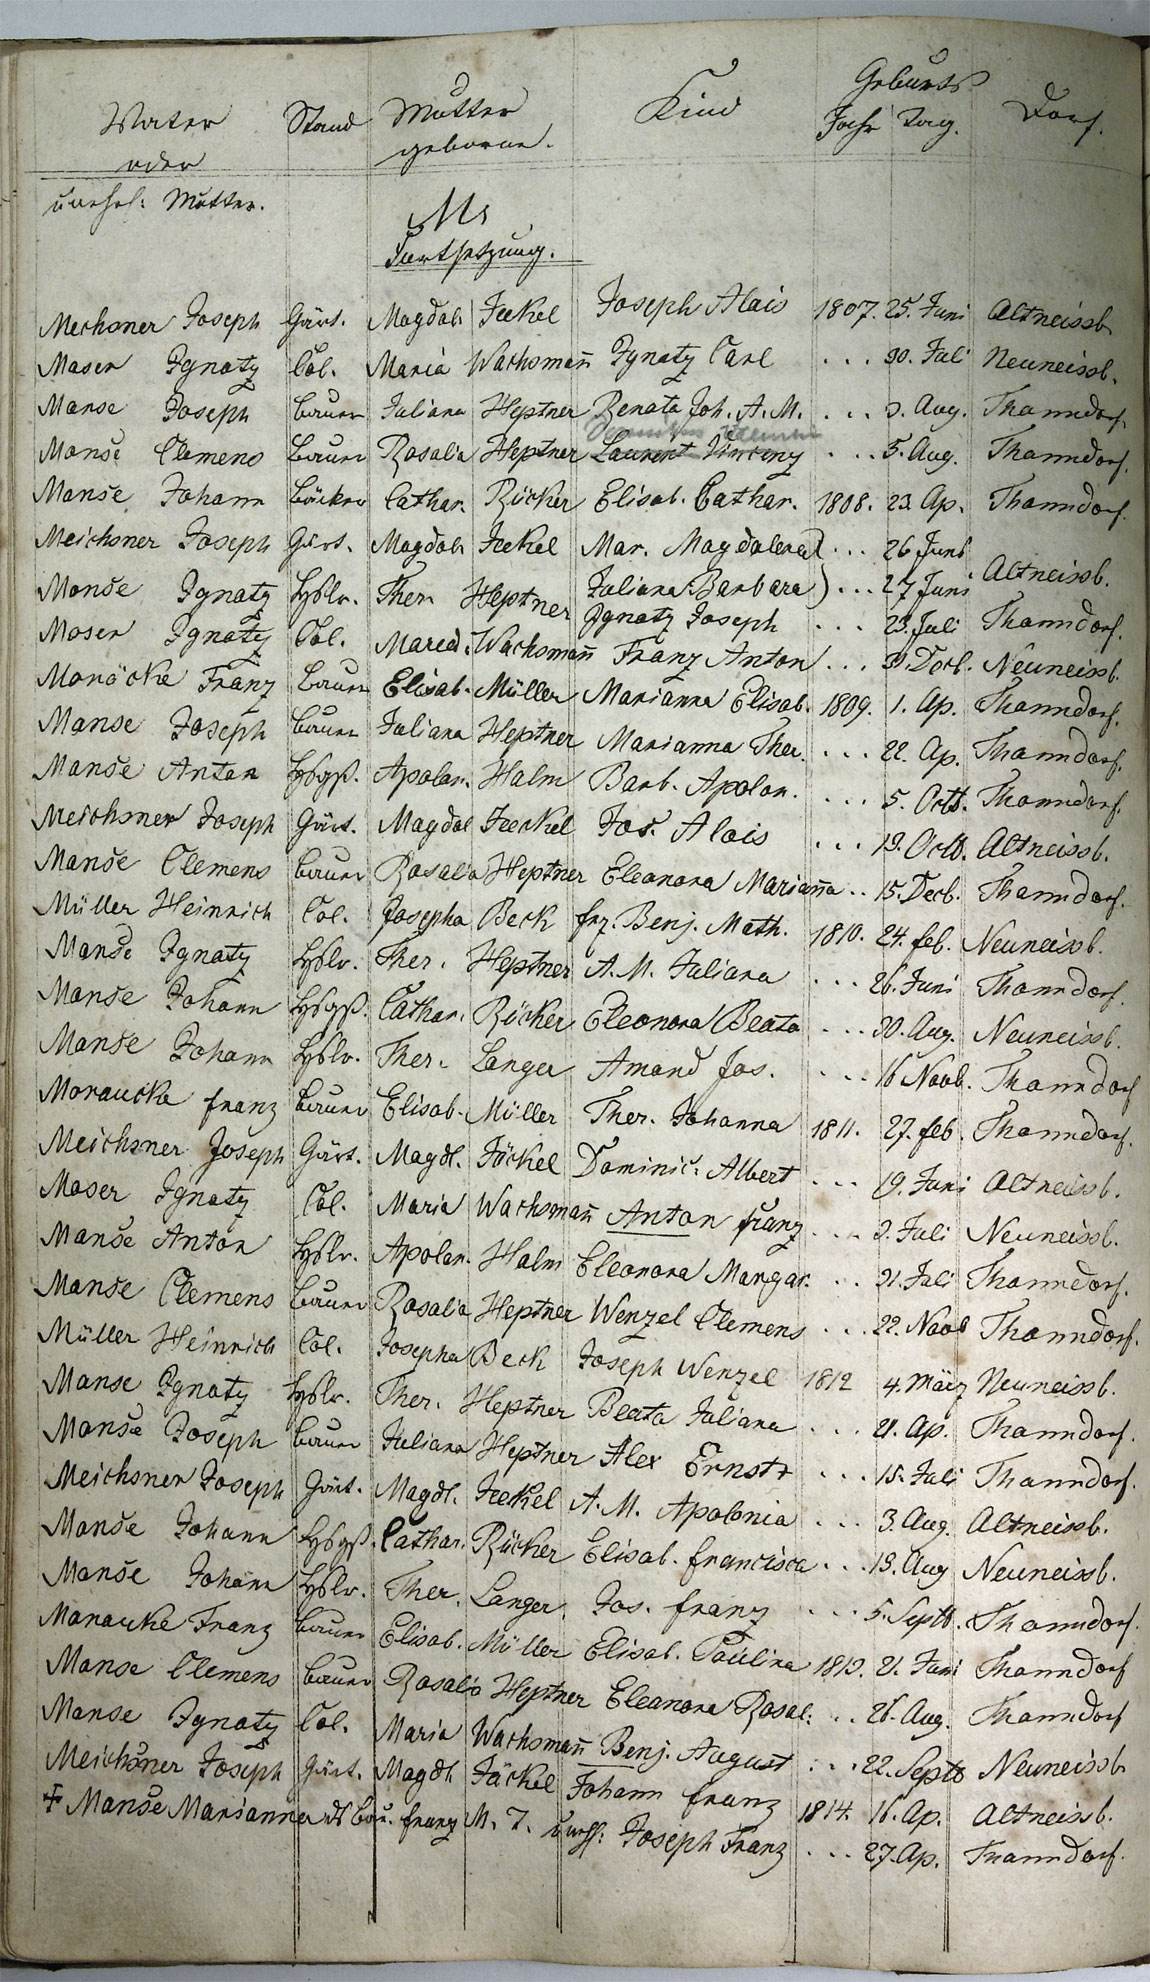 Vater Stand Mutter Kind Geburts Dorf.
oder geborne. Jahr Tag.
unehel: Mutter.
M
Fortsetzung.
Mechsner Joseph Gärt. Magdal. Jeckel Joseph Alois 1807. 25. Juni Altneissb.
Maser Ignatz Col. Maria Wachsman̄ Ignatz Carl ... 30. Juli Neuneissb.
Manse Joseph Bauer Juliana Heptner Renata Joh. A. M. ... 3. Aug. Thanndorf.
Manse Clemens Bauer Rosalia Heptner Laurent Vincenz ... 5. Aug. Thanndorf.
Manse Johann Bäcker Cathar. Rücker Elisab. Cathar. 1808. 23. Ap. Thanndorf.
Meichsner Joseph Gärt. Magdal. Jeckel Mar. Magdalena ... 26 Juni
Juliana Barbara ... 27 Juni Altneissb.
Monse Ignatz Hslr. Ther. Heptner Ignatz Joseph ... 23. Juli Thanndorf.
Moser Ignatz Col. Maria Wachsman̄ Franz Anton ... 3. Decb. Neuneissb.
Moräcke Franz Bauer Elisab. Müller Marianna Elisab. 1809. 1. Ap. Thanndorf.
Manse Joseph Bauer Juliana Heptner Marianna Ther. ... 22. Ap. Thanndorf.
Manse Anton Hsgß. Apolon. Halm Barb. Apolon. ... 5. Octb. Thanndorf.
Meichsner Joseph Gärt. Magdal Jeckel Jos. Alois ... 19. Octb. Altneissb.
Manse Clemens Bauer Rosalia Heptner Eleonora Marian̄a .. 15. Decb. Thanndorf.
Müller Heinrich Col. Josepha Beck frz. Benj. Math. 1810. 24. feb. Neuneissb.
Manse Ignatz Hslr. Ther. Heptner A. M. Juliana ... 26. Juni Thanndorf.
Manse Johann Hsgß. Cathar. Rücker Eleonora Beata ... 30. Aug. Neuneissb.
Manse Johann Hslr. Ther. Langer Amand Jos. ... 16 Novb. Thanndorf
Moraucke franz Bauer Elisab. Müller Ther. Johanna 1811. 27. feb. Thanndorf.
Meichsner Joseph Gärt. Magdl. Jäckel Dominic. Albert ... 19. Juni Altneissb.
Moser Ignatz Col. Maria Wachsman̄ Anton franz ... 3. Juli Neuneissb.
Manse Anton Hslr. Apolon. Halm Eleonora Margar. ... 31. Juli Thanndorf.
Manse Clemens Bauer Rosalia Heptner Wenzel Clemens ... 22. Novb Thanndorf.
Müller Heinrich Col. Josepha Beck Joseph Wenzel 1812 4. März Neuneissb.
Manse Ignatz Hslr. Ther. Heptner Beata Juliana ... 21. Ap. Thanndorf.
Manse Joseph Bauer Juliana Heptner Alex Ernst ... 15. Juli Thanndorf.
Meichsner Joseph Gärt. Magdl. Jeckel A. M. Apolonia ... 3. Aug. Altneissb.
Manse Johann Hsgß. Cathar. Rücker Elisab. francisca ... 19. Aug Neuneissb.
Manse Johann Hslr. Ther. Langer. Jos. franz ... 5. Septb. Thanndorf.
Moraucke Franz Bauer Elisab. Müller Elisab. Paulina 1813. 21. Juni Thanndorf
Manse Clemens Bauer Rosalia Heptner Eleonora Rosal. .. 26. Aug. Thanndorf
Manse Ignatz Col. Maria Wachsman̄ Benj. August ... 22. Septb Neuneissb.
Meichsner Joseph Gärt. Magdl. Jäckel Johann franz 1814. 16. Ap. Altneissb.
✝ Manse Marianna franz M. T. Joseph Franz ... 27. Ap. Thanndorf.